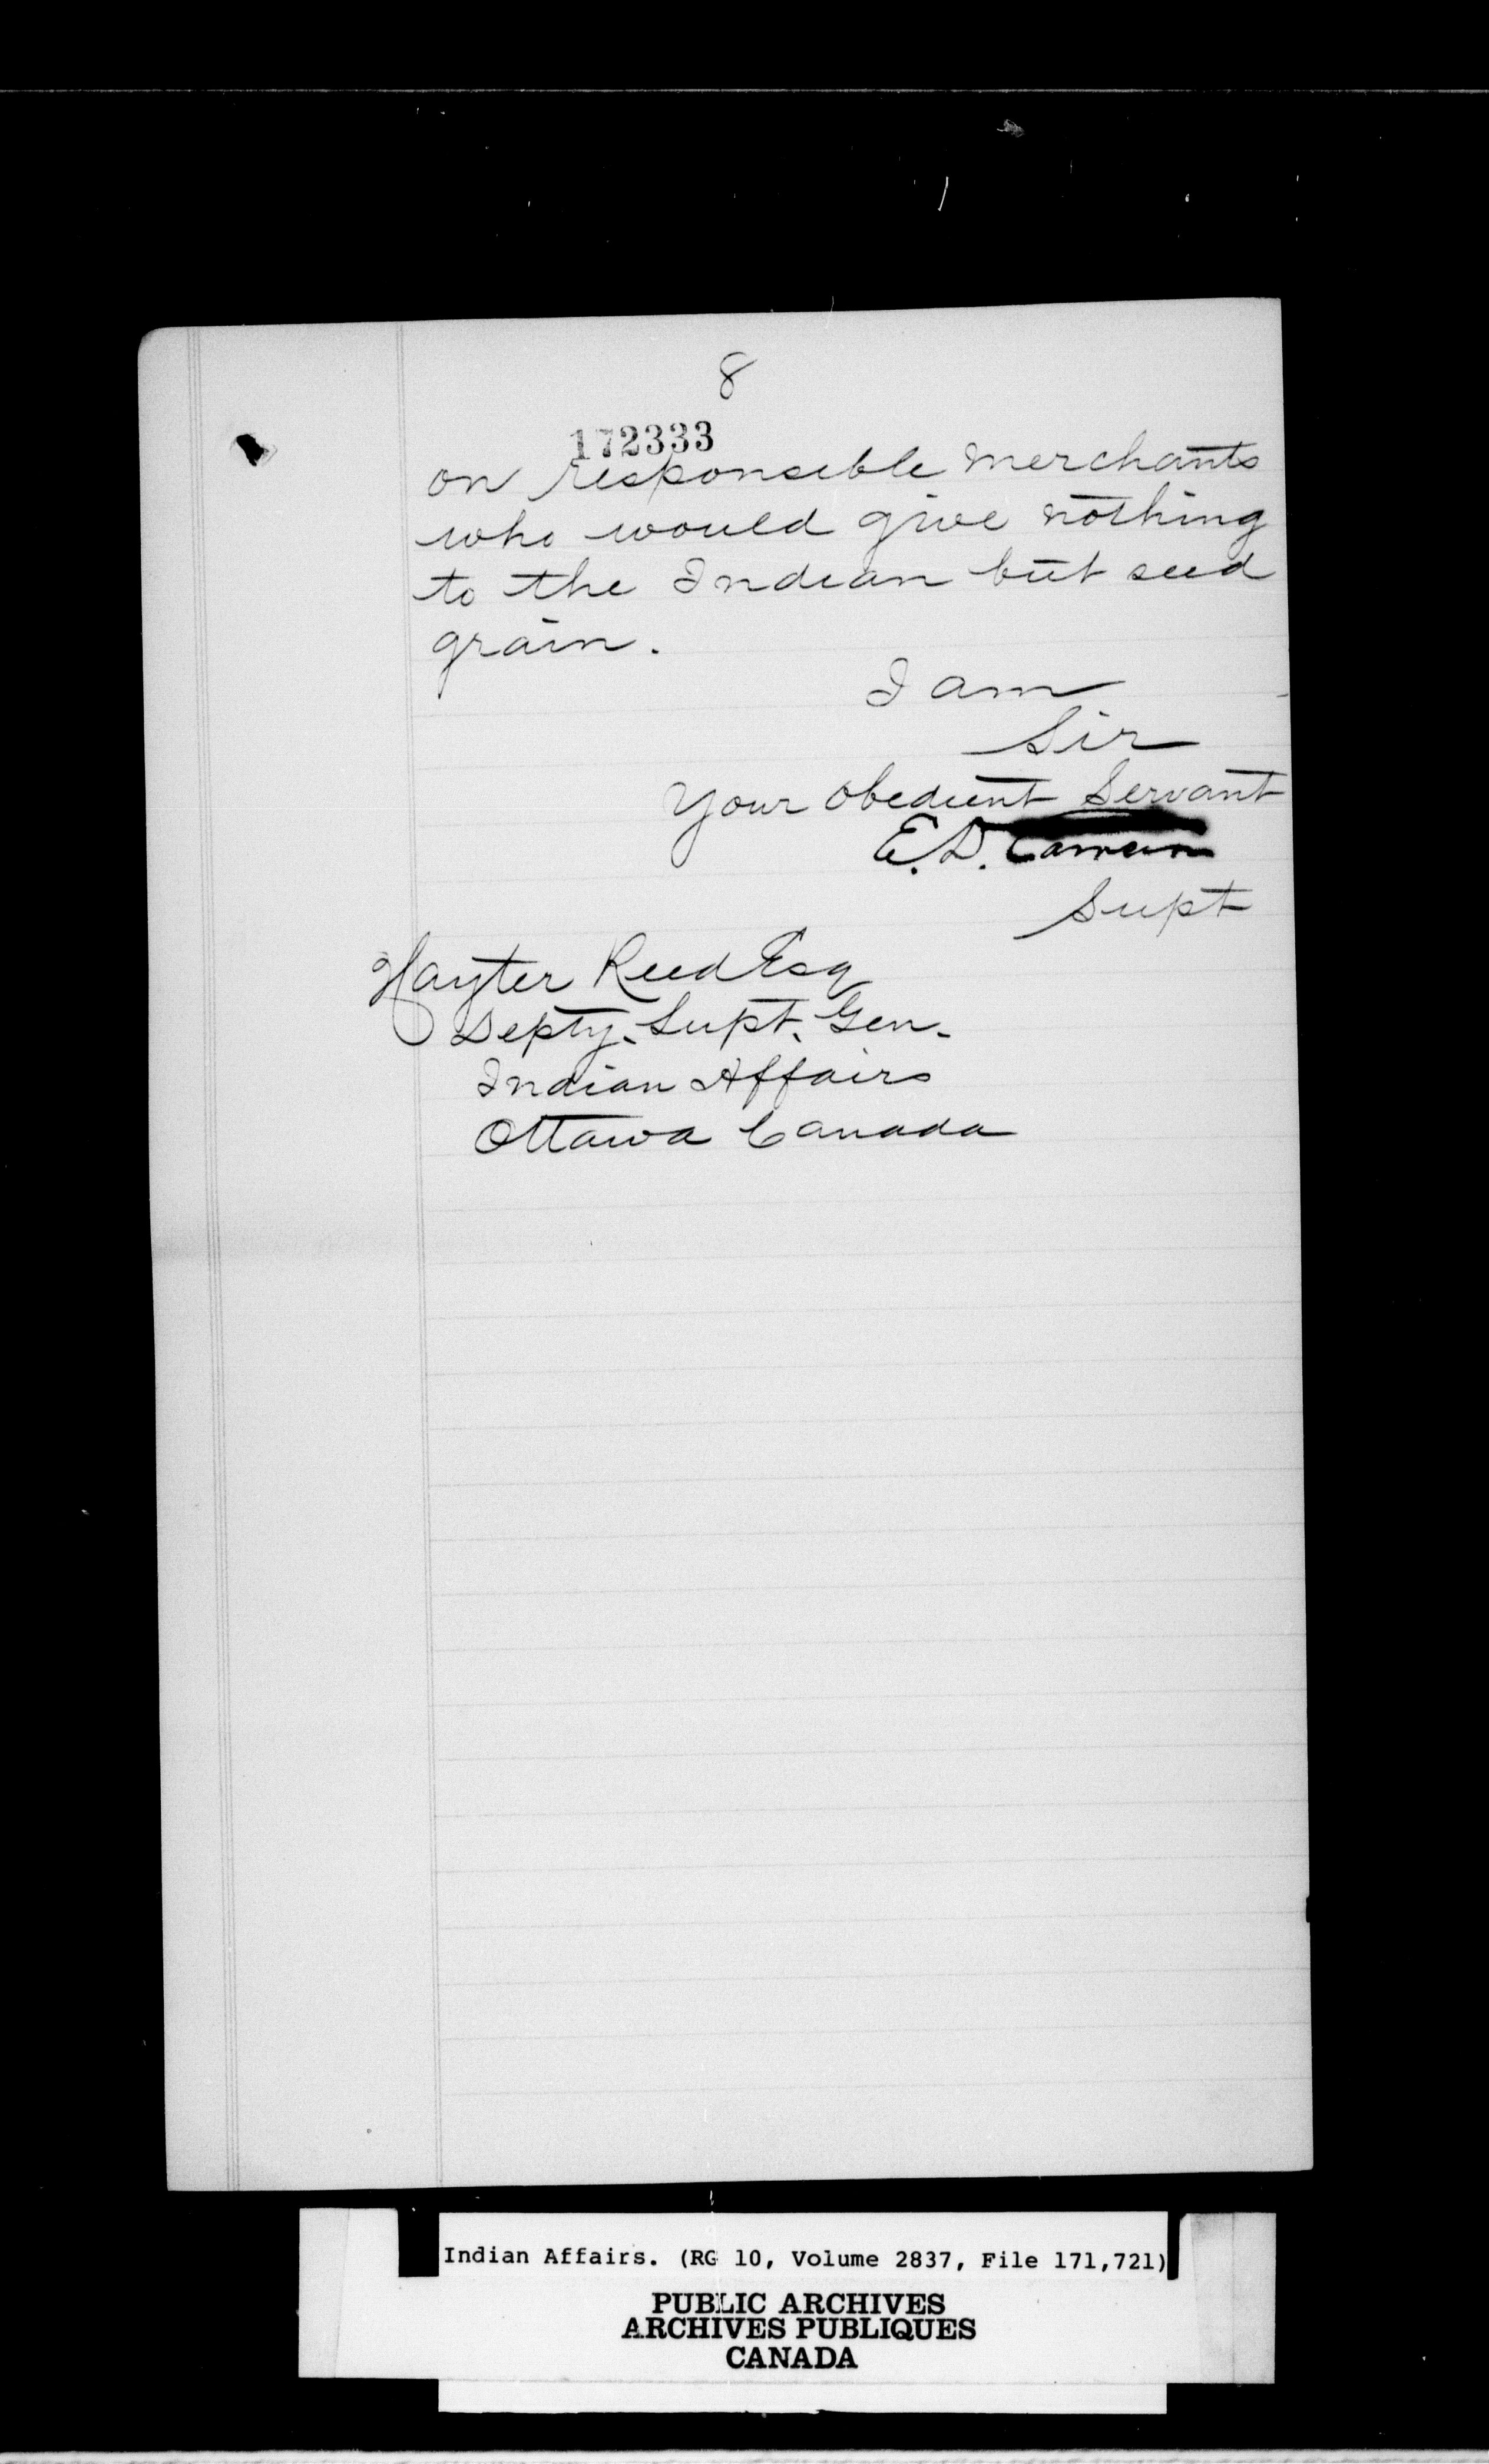 8
172333
on responsible merchants
who would give nothing
to the Indian but seed
grain.
I am
Sir
Your obedient Servant
E. D. Cameron
Supt
Hayter Reed Esq
Depty. Supt. Gen.
Indian Affairs
Ottawa Canada
Indian Affairs. (RG 10, Volume 2837, File 171,721)
PUBLIC ARCHIVES
ARCHIVES PUBLIQUES
CANADA